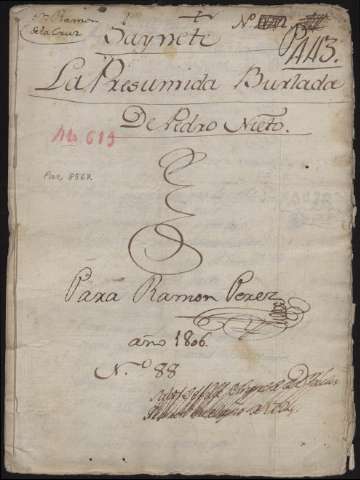 Dn Ramon
de la Cruz
Nº
Saynete
443.
La Presumida Burlada
De Pedro Nieto.
Ms 613
Paz, 8568
Para Ramon Perez
año 1806.
N.º 88